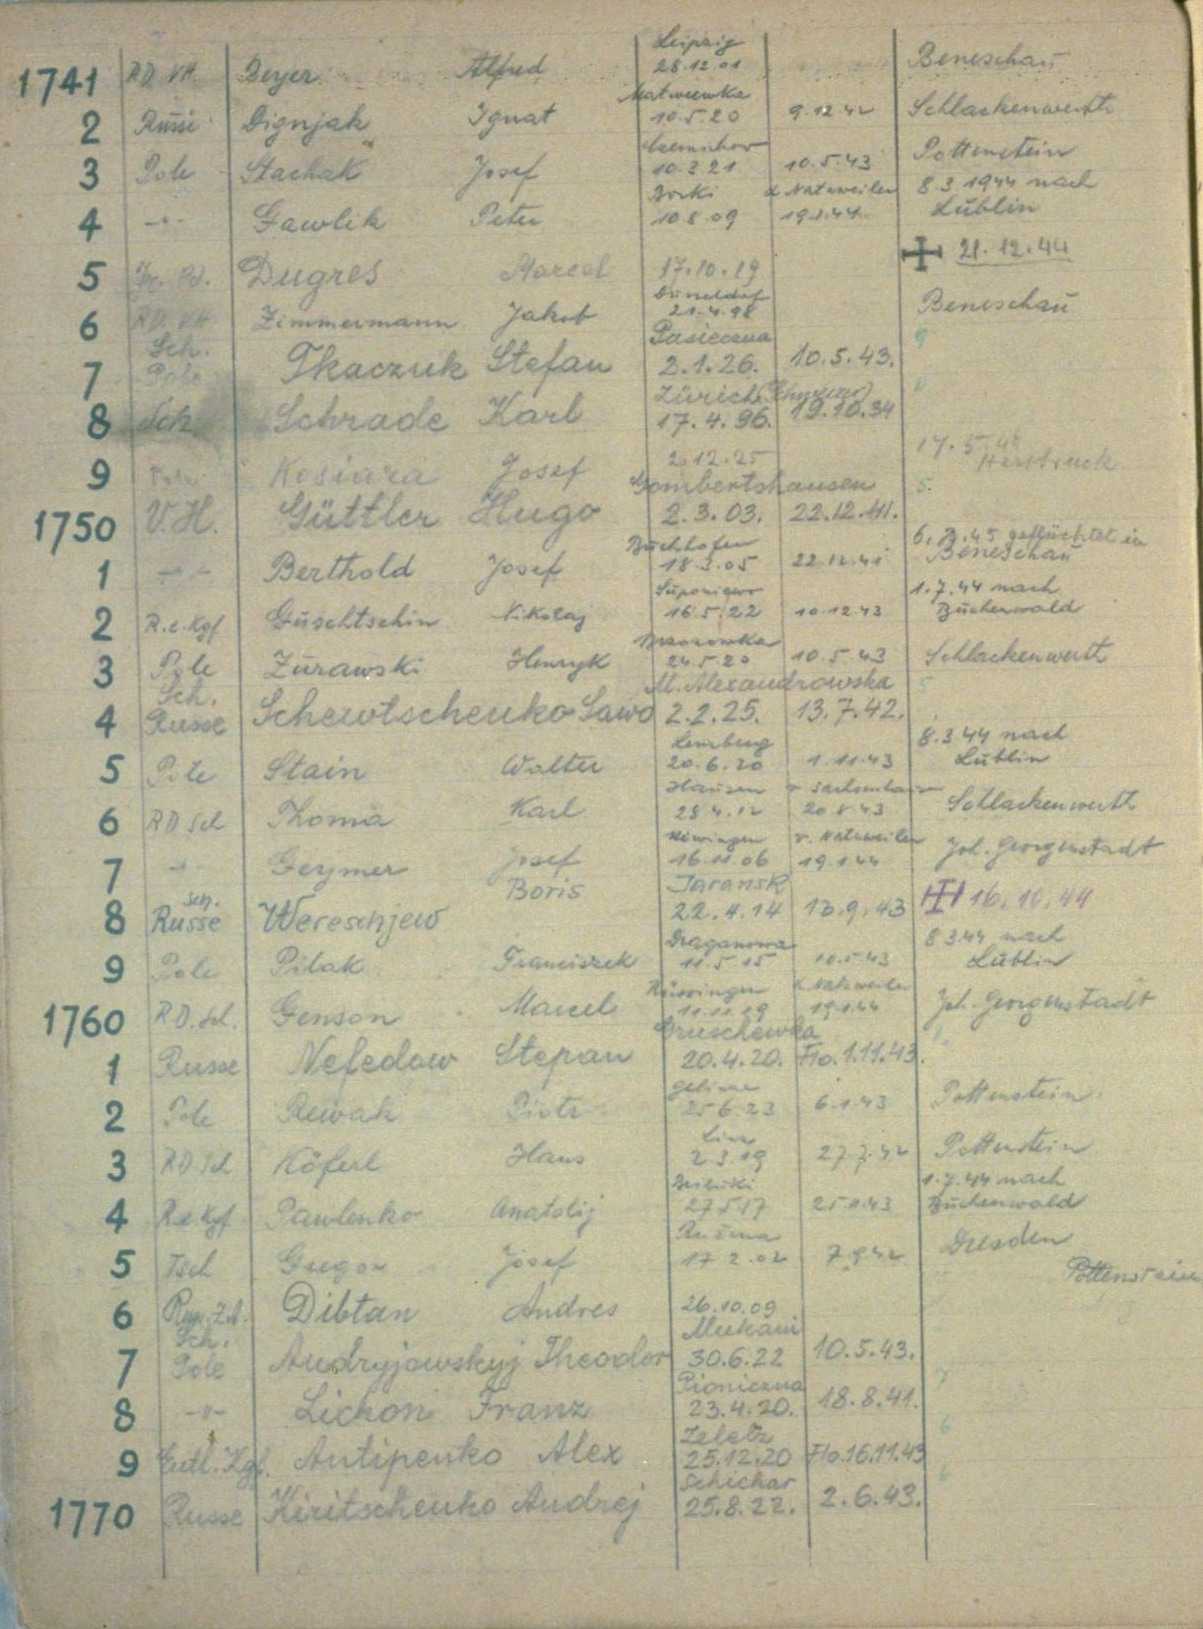 1741 RD VH Beyer Alfred Leipzig 28.12.01 Beneschau
2 Russe Dignjak Ignat Matweewka 10.5.20 9.12.42 Schlackenwerth
3 Pole Stachak Josef 10.3.21 10.5.43 Pottenstein
4 -"- Gawlik Peter Borki 10.8.09 v. Natzweiler 19.1.44 8.3.1944 nach Lublin
5 Dugres Marcel 17.10.19 21.12.44
6 RD VH Zimmermann Jakob Düsseldorf 21.4.98 Beneschau
7 Sch. Pole Tkaczuk Stefan Pasieczna 2.1.26. 10.5.43. 9
8 Sch Schrade Karl Zürich (Schweiz) 17.4.96. 19.10.34
9 Kosiara Josef 2.12.25 17.5.44 Hersbruck
1750 V.H. Güttler Hugo Gombertshausen 2.3.03. 22.12.41. 5
1 -"- Berthold Josef Buchhofen 18.3.05 22.12.41 geflüchtet in Beneschau
2 R.e.Kgf Guschtschin Nikolaj 16.5.22 10.12.43 1.7.44 nach Buchenwald
3 Pole Zurawski Henryk Brzozowka 24.5.20 10.5.43 Schlackenwerth
4 Sch. Russe Schewtschenko Sawo M. Alexandrowska 2.2.25. 13.7.42. 5
5 Pole Stain Walter Lemberg 20.6.20 1.11.43 8.3.44 nach Lublin
6 RD Sch Thoma Karl Hausen 28.4.12 v. Sachsenhausen 20.8.43 Schlackenwerth
7 -"- Geymer Josef 16.11.06 v. Natzweiler 19.1.44 Joh. Georgenstadt
8 Sch. Russe Wereschjew Boris Jaransk 22.4.14 13.9.43 16.10.44
9 Pole Pilak Franciszek Draganowa 11.5.15 10.5.43 8.3.44 nach Lublin
1760 R.D. Sch. Genson Marcel 11.11.19 v. Natzweiler 19.1.44 Joh. Georgenstadt
1 Russe Nefedow Stepan Gruschewka 20.4.20. Flo. 1.11.43.
2 Pole Rewak Piotr 25.6.23 6.1.43 Pottenstein
3 RD Sch Köferl Hans Linz 2.3.19 27.7.42 Pottenstein
4 R.e Kgf Pawlenko Anatolij 27.5.17 25.1.43 1.7.44 nach Buchenwald
5 Tsch Gregor Josef 17.2.02 7.9.42 Dresden
Pottenstein
6 Dibtan Andres 26.10.09
7 Sch. Pole Andryjowskyj Theodor 30.6.22 10.5.43.
8 -"- Lichon Franz Pioniczna 23.4.20. 18.8.41. 7
9 Entl. Kgf. Antipenko Alex Zeletz 25.12.20 Flo. 16.11.43 6
1770 Russe Kiritschenko Andrej Schichar 25.8.22. 2.6.43. 6